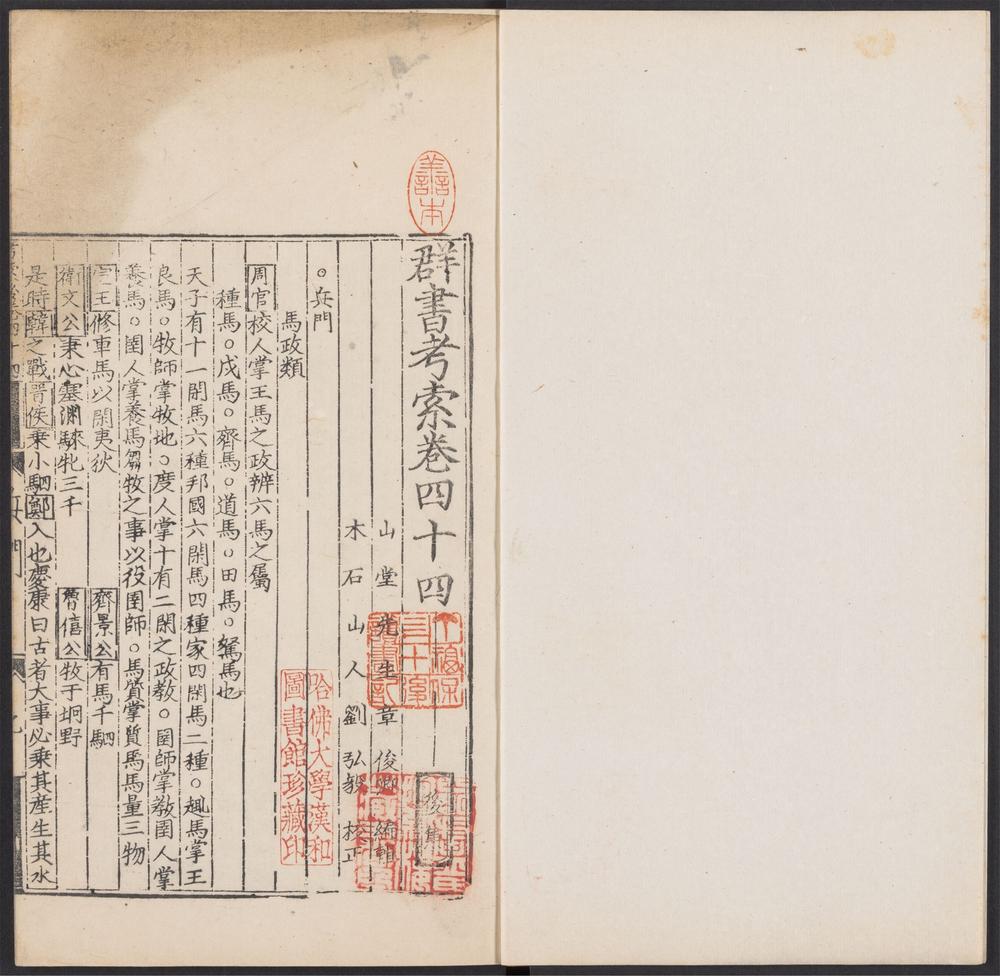 群書考索卷四十四
後集
山堂先生章俊卿編輯
木石山人劉弘毅校正
。兵門
馬政類
周官校人掌王馬之政辨六馬之屬
種馬。戎馬。齊馬。道馬。田馬。駑馬也
天子有十一閑馬六種邦國六閑馬四種家四閑馬二種。趣馬掌王
良馬。牧師掌牧地。庾人掌十有二閑之政教。圉師掌教圉人掌
養馬。圉人掌養馬芻牧之事以役圉師。馬質掌質馬馬量三物
宣王修車馬以閑夷狄 齊景公有馬千駟
衛文公秉心塞淵騋牝三千 魯僖公牧于坰野
是時韓之戰晉侯乗小駟鄭入也慶康曰古者大事必乗其産生其水
善本
哈佛大學漢和
圖書館珍藏印